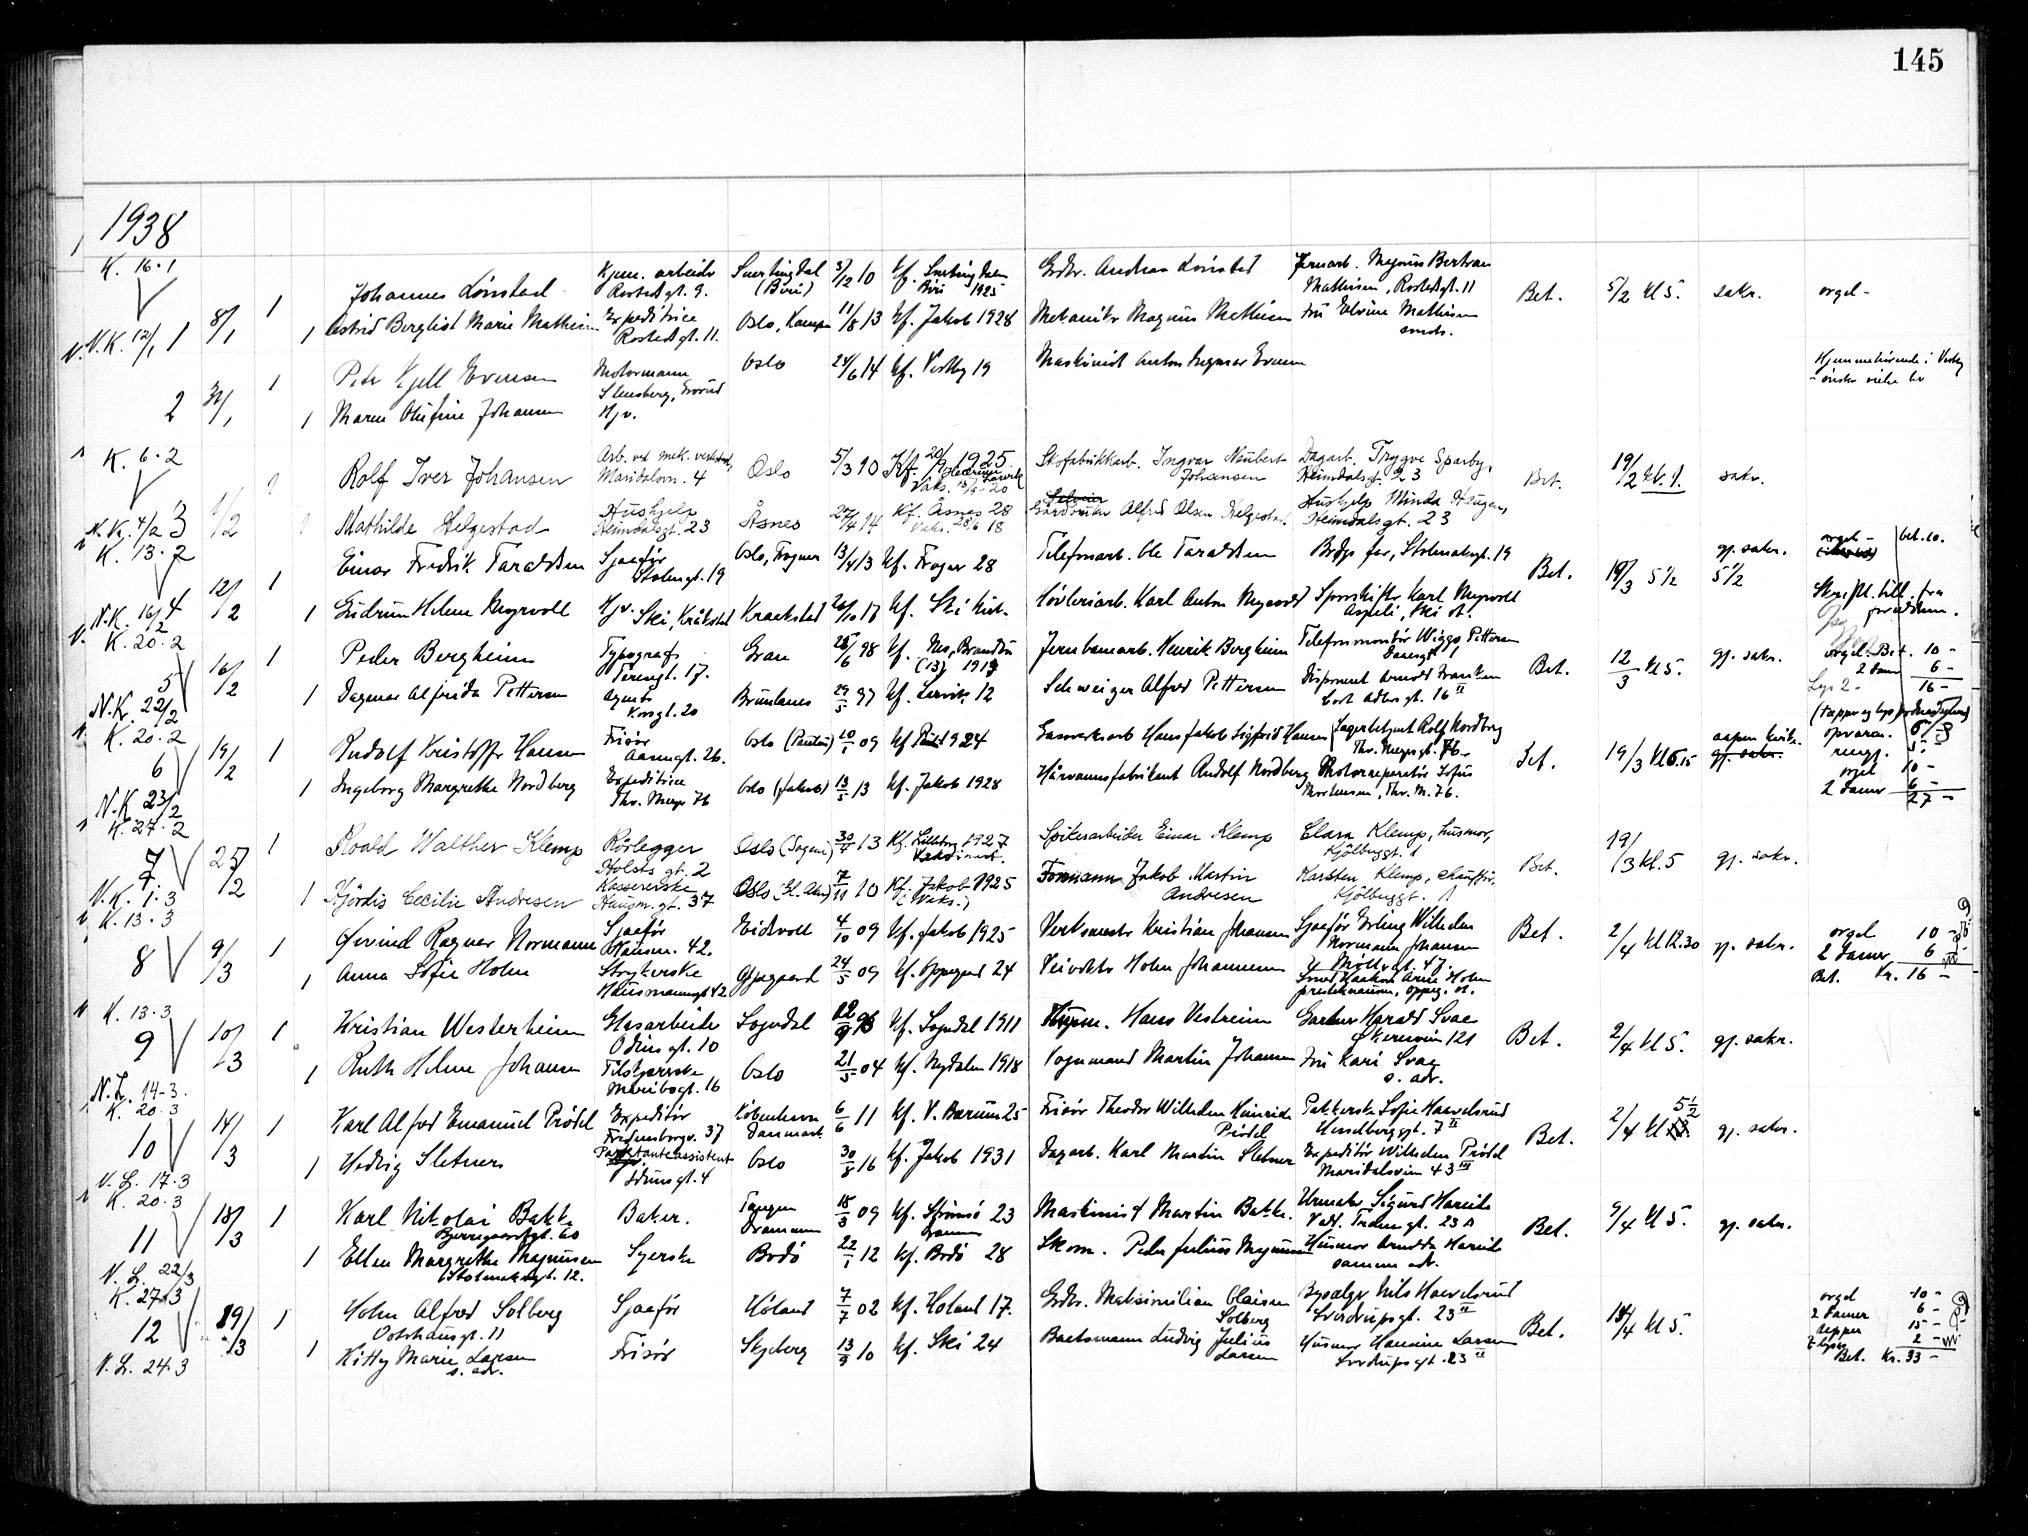 145
1938
K. 16.1
1 8/1 1 Johannes Lönstad Kjem. arbeider Snertingdal 3/2 10 kf. Snertingdalen Grdbr. Andreas Lönstad Magnus Bertran
Rostedsgt. 9. (Biri) Biri 1925 Mathisen, Rostedsgt. 11 Bet. 5/2 kl 5. sakr. orgel -
N.K. 12/1 1 Astrid Bergliot Marie Mathisen Expeditrice Oslo, Kampen 11/8 13 kf. Jakob 1928 Mekaniker Magnus Mathisen Fru Elvine Mathisen
Rostedsgt. 11. smds.
2 1 Peter Kjell Evensen Motormann Oslo 24/6 14 kf. Vestby 19 Maskinist Anton Ingmar Evensen Hjemmehörende i Vestby
Slensberg, - önsker vielse der
1 Maren Olufine Johansen Hjv.
K. 6.2
3 1/2 Rolf Iver Johansen Arb. ved mek. verksted, Oslo 5/3 10 Kf. 1925 Skofabrikkarb. Ingvar Neubert Dagarb. Trygve Sparby,
Maridalsvn. 4 Vaks. Johansen Heimdalsgt. 23 Bet. 19/2 kl. 1. sakr.
Mathilde Helgestad Hushjelp Åsnes 27/4 14 Kf. Åsnes 28 Gårdbruker Alfred Olsen Helgestad. Hushjelp Minda Haugen,
N.K. 4/2 Heimdalsgt. 23 Vaks. 28/6 18 Heimdalsgt. 23
K. 13.2
4 12/2 1 Einar Fredrik Taraldsen Sjaafør Oslo, Frogner 13/4 13 kf. Frogner 28 Telefonarb. Ole Taraldsen Brdgs far, Stolmakergt. 19 Bet. 19/3 5 1/2 gj. sakr. orgel - bet. 10.
Stolmgt. 19 5 1/2
N.K. 16/2 1 Gudrun Helene Myrvoll Hjv. Ski, Kråkstad Kraakstad 20/10 17 kf. Ski Høvleriarb. Karl Anton Myrvold Sporskifter Karl Myrvold
K. 20.2
5 16/2 1 Peder Bergheim Typograf Gran 26/6 98 kf. Nes, Brandbu Jernbanearb. Henrik Bergheim Telefonmontör Wiggo Pettersen Bet. 12/3 kl 5. gj. sakr. orgel. Bet. 10 -
Teresgt. 17. (13) 1913 2 damer 6 -
1 Dagmar Alfrida Pettersen Agnets Brunlanes 29/5 97 kf. Larvik 12 Schweizer Alfred Pettersen Disponent Arnold Franken Lys 2 - 16 -
N.K. 22/2 Korsgt. 20 Cort Adlersgt. 16 II
K. 20.2
6 19/2 1 Rudolf Kristoffer Hansen Frisör Oslo (Paulus) 10/1 09 kf Paulus 1924 Gasverksarb Hans Jakob Sigfrid Hansen Lagerbetjent Rolf Nordberg Bet. 19/3 kl 6.15 aapen kirke. opvarm. 5 -
Aasengt. 26. Thv. Meyersgt. 76 gj. sakr. rengj. 5 -
1 Ingeborg Margrethe Nordberg Expeditrice Oslo (Jakob) 13/5 13 kf. Jakob 1928 Hårvannsfabrikant Rudolf Nordberg Motorreparatör Sofus orgel 10 -
N.K 23/2 Thv. Meyer 76 Mortensen, Thv. M. 76. 2 damer 6 -
27 -
K. 27.2
7 25/2 1 Roald Walther Klemp Rørlegger Oslo (Sagene) 30/4 13 Kf. Lilleborg 1927 Spikerarbeider Einar Klemp Clara Klemp, husmor, 19/3 kl. 5 gj. sakr.
Holsts gt. 2 Vaksinert. Kjölberggt. 1 Bet.
1 Hjördis Cecilie Andresen Kassererske Oslo (Gl. Aker) 7/11 10 Kf. Jakob 1925 Formann Jakob Martin Karsten Klemp, chauffør,
N.K. 1.3 Hausm.gt. 37 (Vaks.) Andresen Kjölberggt. 1
K. 13.3
8 9/3 1 Øivind Ragnar Normann Sjaafør Eidsvoll 4/10 09 kf. Jakob 1925 Verksmester Kristian Johansen Sjaafør Erling Wilhelm Bet. 2/4 kl 12.30 gj. sakr. orgel 10 -
Hausm. 42. Normann Johansen 2 damer 6 -
1 Anna Sofie Holm Strykerske Oppegaard 24/5 09 kf. Oppegård 24 Veivokter Holm Johannessen Møllergt. 47. Bet. Kr. 16 -
Hausmannsgt 42 Smed Haakon Arne Holm
K. 13.3
9 10/3 1 Kristian Westerheim Glasarbeider Sogndal 12/9 96 kf. Sogndal 1911 Hans Vestreim Gartner Harald Svae Bet. 2/4 kl 5. gj. sakr.
Odinsgt. 10 Økernvein 121
1 Ruth Helene Johansen Tilskjærerske Oslo 21/5 04 kf. Nydalen 1918 Vognmand Martin Johansen Fru Kari Svae
N.L. 14-3. Maribogt. 16 s. adr.
K. 20.3
10 14/3 1 Karl Alfred Emanuel Prödel Expeditör København 6/6 11 kf. V. Bærum 25 Frisör Theodor Wilhelm Heinrich Pakkerske Sofie Haavelsrud Bet. 2/4 kl 5 1/2 gj. sakr.
Fredensborgv. 37 Danmark Prödel Hesselberggt. 7 II
1 Hedvig Sletner Parktanteassistent Oslo 30/8 16 kf. Jakob 1931 Dagarb. Karl Martin Sletner Expeditör Wilhelm Prödel
N.L. 17.3 Idunsgt. 4 Maridalsveien 43 III
K. 20.3
11 18/3 1 Karl Nikolai Bakke Baker. Tangen 18/3 09 kf. Strömsö 23 Maskinist Martin Bakke. Urmaker Sigurd Bet. 9/4 kl 5. gj. sakr.
Bjerregaardsgt. 60 Drammen Drammen
1 Ellen Margrethe Magnussen Syerske Bodö 22/1 12 kf. Bodö 28 Skom. Peder Julius Magnussen Husmor
N.L. 22/3 Stolmakergt. 12. samme adr.
K. 27.3
12 19/3 1 John Alfred Solberg Sjaafør Høland 7/7 02 kf. Høland 17. Grdbr. Maksimilian Olaisen Bysælger Nils Haavelsrud Bet. 18/4 kl 5. orgel 10 -
Osterhausgt. 11 Solberg Sverdrupsgt. 23 II 2 damer 6 -
1 Kitty Marie Larsen Frisör Skjeberg 13/9 10 kf. Ski 24 Baatsmann Ludvig Julius Husmor Hansine Larsen tepper 15 -
N.L. 24.3 s. adr. Larsen Sverdrupsgt. 23 II lyse 2 -
Bet. Kr. 33 -